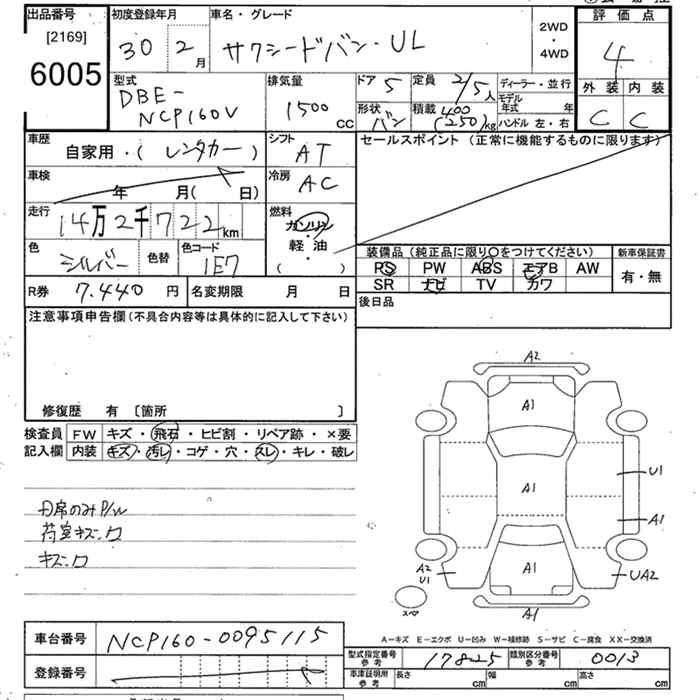 出品番号 初度登録年月 車名・グレード 評価点
[2169]
6005
30 2月 サクシードバン・UL 2WD・4WD 4
外装 内装
C C
型式 排気量 ドア 5 定員 2/5人 ディーラー・並行
DBE-NCP160V 1500cc 形状 バン 積載 400(250)kg モデル年式 年
ハンドル 左・右
車歴 シフト セールスポイント (正常に機能するものに限ります)
自家用・(レンタカー) AT
車検 年 月( 日) 冷房 AC
走行 14万2千722km 燃料 ガソリン
軽・油
( )
色 シルバー 色替 色コード 1E7
装備品(純正品に限り○をつけてください) 新車保証書
PS PW ABS エアB AW 有・無
SR ナビ TV カワ
R券 7.440円 名変期限 月 日 後日品
注意事項申告欄(不具合内容等は具体的に記入して下さい)
修復歴 有 〔箇所 〕
検査員 FW キズ・飛石・ヒビ割・リペア跡・×要
記入欄 内装 キズ・汚レ・コゲ・穴・スレ・キレ・破レ
D席のみP/W
荷室キズ、ロ
キズ、ロ
A2
A1
A1
U1
A1
A2
U1
A1
UA2
スペア
A1
A-キズ E-エクボ U-凹み W-補修跡 S-サビ C-腐食 XX-交換済
車台番号 NCP160-0095115
型式指定番号 参考 17825 類別区分番号 参考 0013
登録番号
車庫証明用 参考 長さ cm 幅 cm 高さ cm